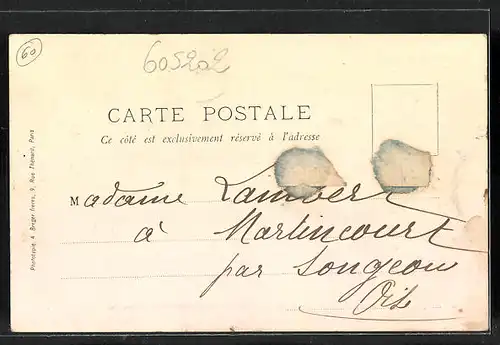 60
605202
CARTE POSTALE
Ce côté est exclusivement réservé à l'adresse
Madame Lambert
à Martincourt
par Songeons
Oise
Phototypie A. Berger frères, 9, Rue Thénard, Paris